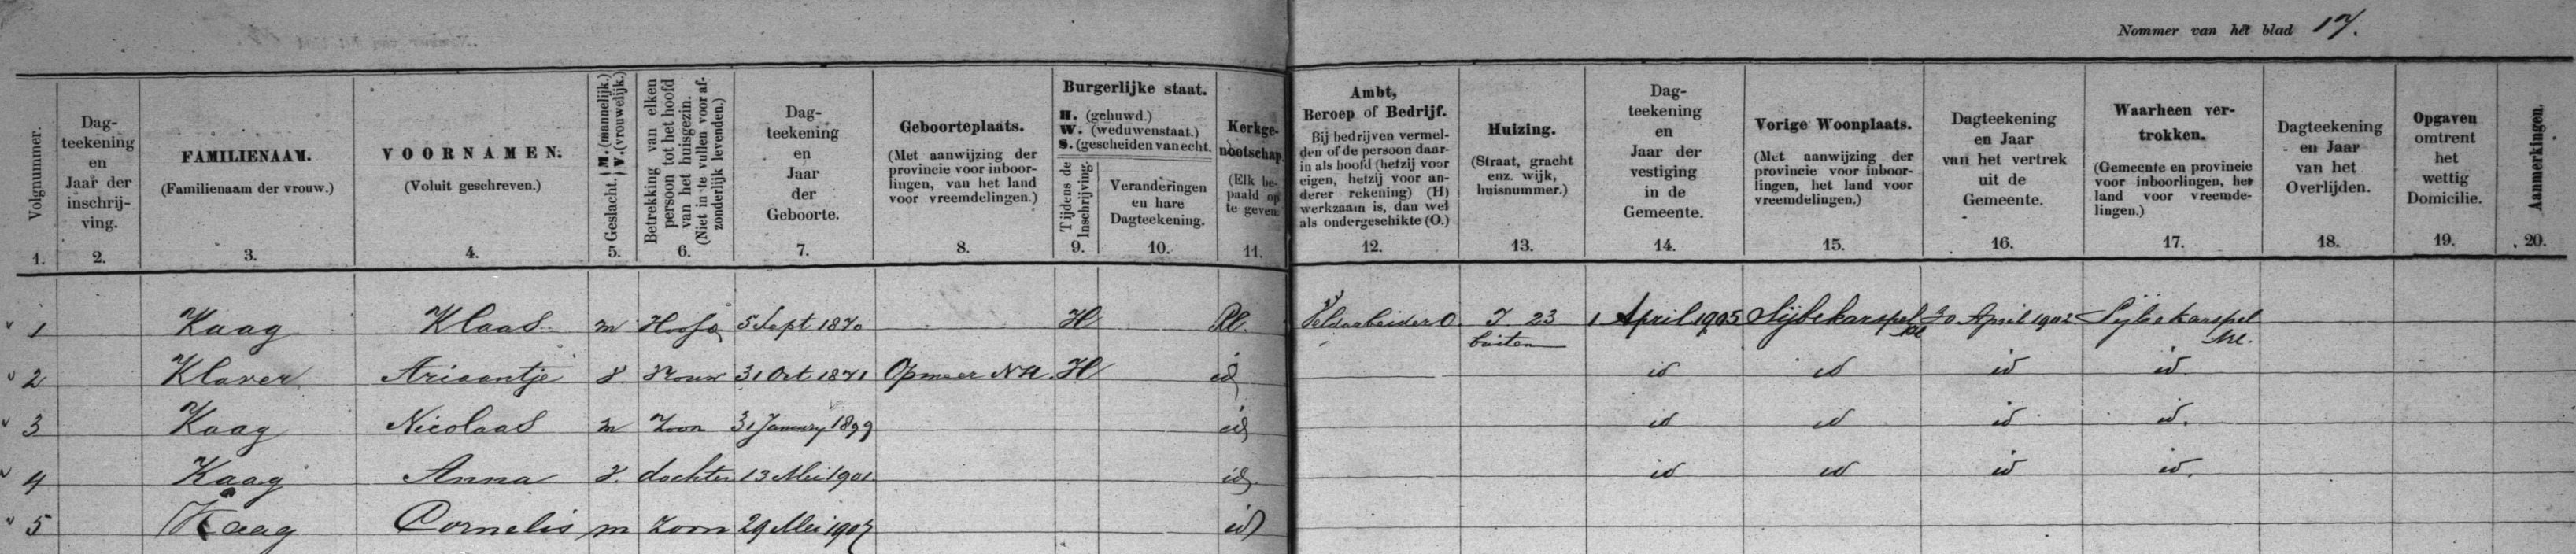 Nommer van het blad 17.
Volgnummer.
Dag-
teekening
en
Jaar der
inschrij-
ving.
FAMILIENAAM.
(Familienaam der vrouw.)
VOORNAMEN.
(Voluit geschreven.)
Geslacht. M. (mannelijk.) V. (vrouwelijk.)
Betrekking van elken
persoon tot het hoofd
van het huisgezin.
(Niet in te vullen voor af-
zonderlijk levenden.)
Dag-
teekening
en
Jaar
der
Geboorte.
Geboorteplaats.
(Met aanwijzing der
provincie voor inboor-
lingen, van het land
voor vreemdelingen.)
Burgerlijke staat.
H. (gehuwd.)
W. (weduwenstaat.)
S. (gescheiden van echt.)
Tijdens de
Inschrijving.
Veranderingen
en hare
Dagteekening.
Kerkge-
nootschap.
(Elk be-
paald op
te geven.
Ambt,
Beroep of Bedrijf.
Bij bedrijven vermel-
den of de persoon daar-
in als hoofd (hetzij voor
eigen, hetzij voor an-
derer rekening) (H)
werkzaam is, dan wel
als ondergeschikte (O.)
Huizing.
(Straat, gracht
enz. wijk,
huisnummer.)
Dag-
teekening
en
Jaar der
vestiging
in de
Gemeente.
Vorige Woonplaats.
(Met aanwijzing der
provincie voor inboor-
lingen, het land voor
vreemdelingen.)
Dagteekening
en Jaar
van het vertrek
uit de
Gemeente.
Waarheen ver-
trokken.
(Gemeente en provincie
voor inboorlingen, het
land voor vreemde-
lingen.)
Dagteekening
en Jaar
van het
Overlijden.
Opgaven
omtrent
het
wettig
Domicilie.
Aanmerkingen.
1. 2. 3. 4. 5. 6. 7. 8. 9. 10. 11. 12. 13. 14. 15. 16. 17. 18. 19. 20.
1 Kaag Klaas m Hoofd 5 Sept 1870 H Veldarbeider O. 23 1 April 1905 Sijbekarspel 30 April Sijbekarspel
buiten
2 Klaver Ariaantje v. Vrouw 31 Oct 1871 Opmeer NH. H id id id id id.
3 Kaag Nicolaas m Zoon 31 January 1899 id id id id id.
4 Kaag Anna v. dochter 13 Mei 1901. id. id id id id.
5 Kaag Cornelis m zoon 29 Mei 1907 id